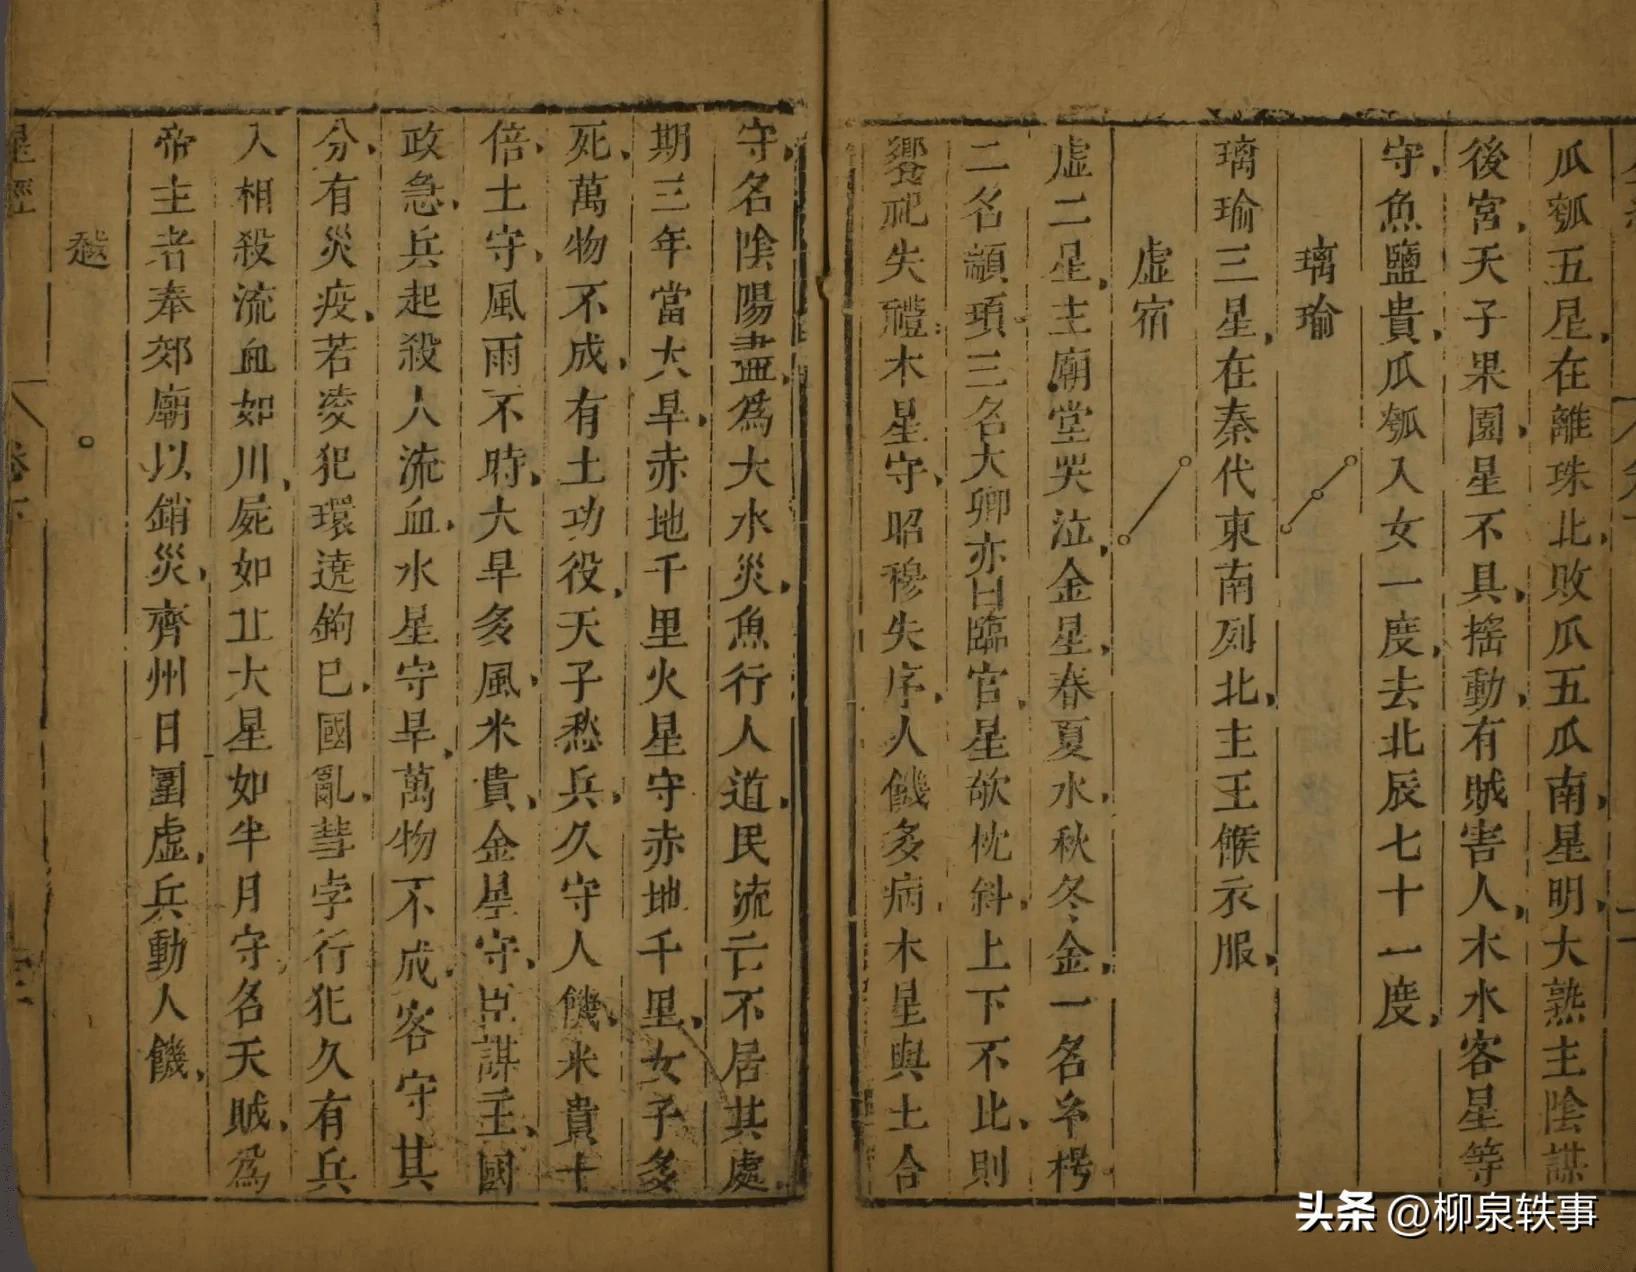 瓜瓠五星在離珠北敗瓜五瓜南星明大熟主陰謀
後宮天子果園星不具搖動有賊害人木水客星等
守魚鹽貴瓜瓠入女一度去北辰七十一度
璃瑜
璃瑜三星在秦代東南列北主王侯衣服
虛宿
虛二星主廟堂哭泣金星春夏水秋冬金一名玄枵
二名顓頊三名大卿亦曰臨官星欹枕斜上下不比則
饗祀失禮木星守昭穆失序人饑多病木星與土合
守名陰陽盡為大水災魚行人道民流亡不居其處
期三年當大旱赤地千里火星守赤地千里女子多
死萬物不成有土功役天子愁兵久守人饑米貴十
倍土守風雨不時大旱多風米貴金星守臣謀主國
政急兵起殺人流血水星守旱萬物不成客守其
分有災疫若凌犯環遶鉤巳國亂彗孛行犯久有兵
入相殺流血如川屍如丘大星如半月守名天賊為
帝主者奉郊廟以銷災齊州日圍虛兵動人饑
越
星經
卷下
头条 @柳泉轶事